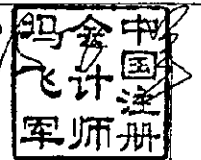 中国注册
会计师
冯飞军